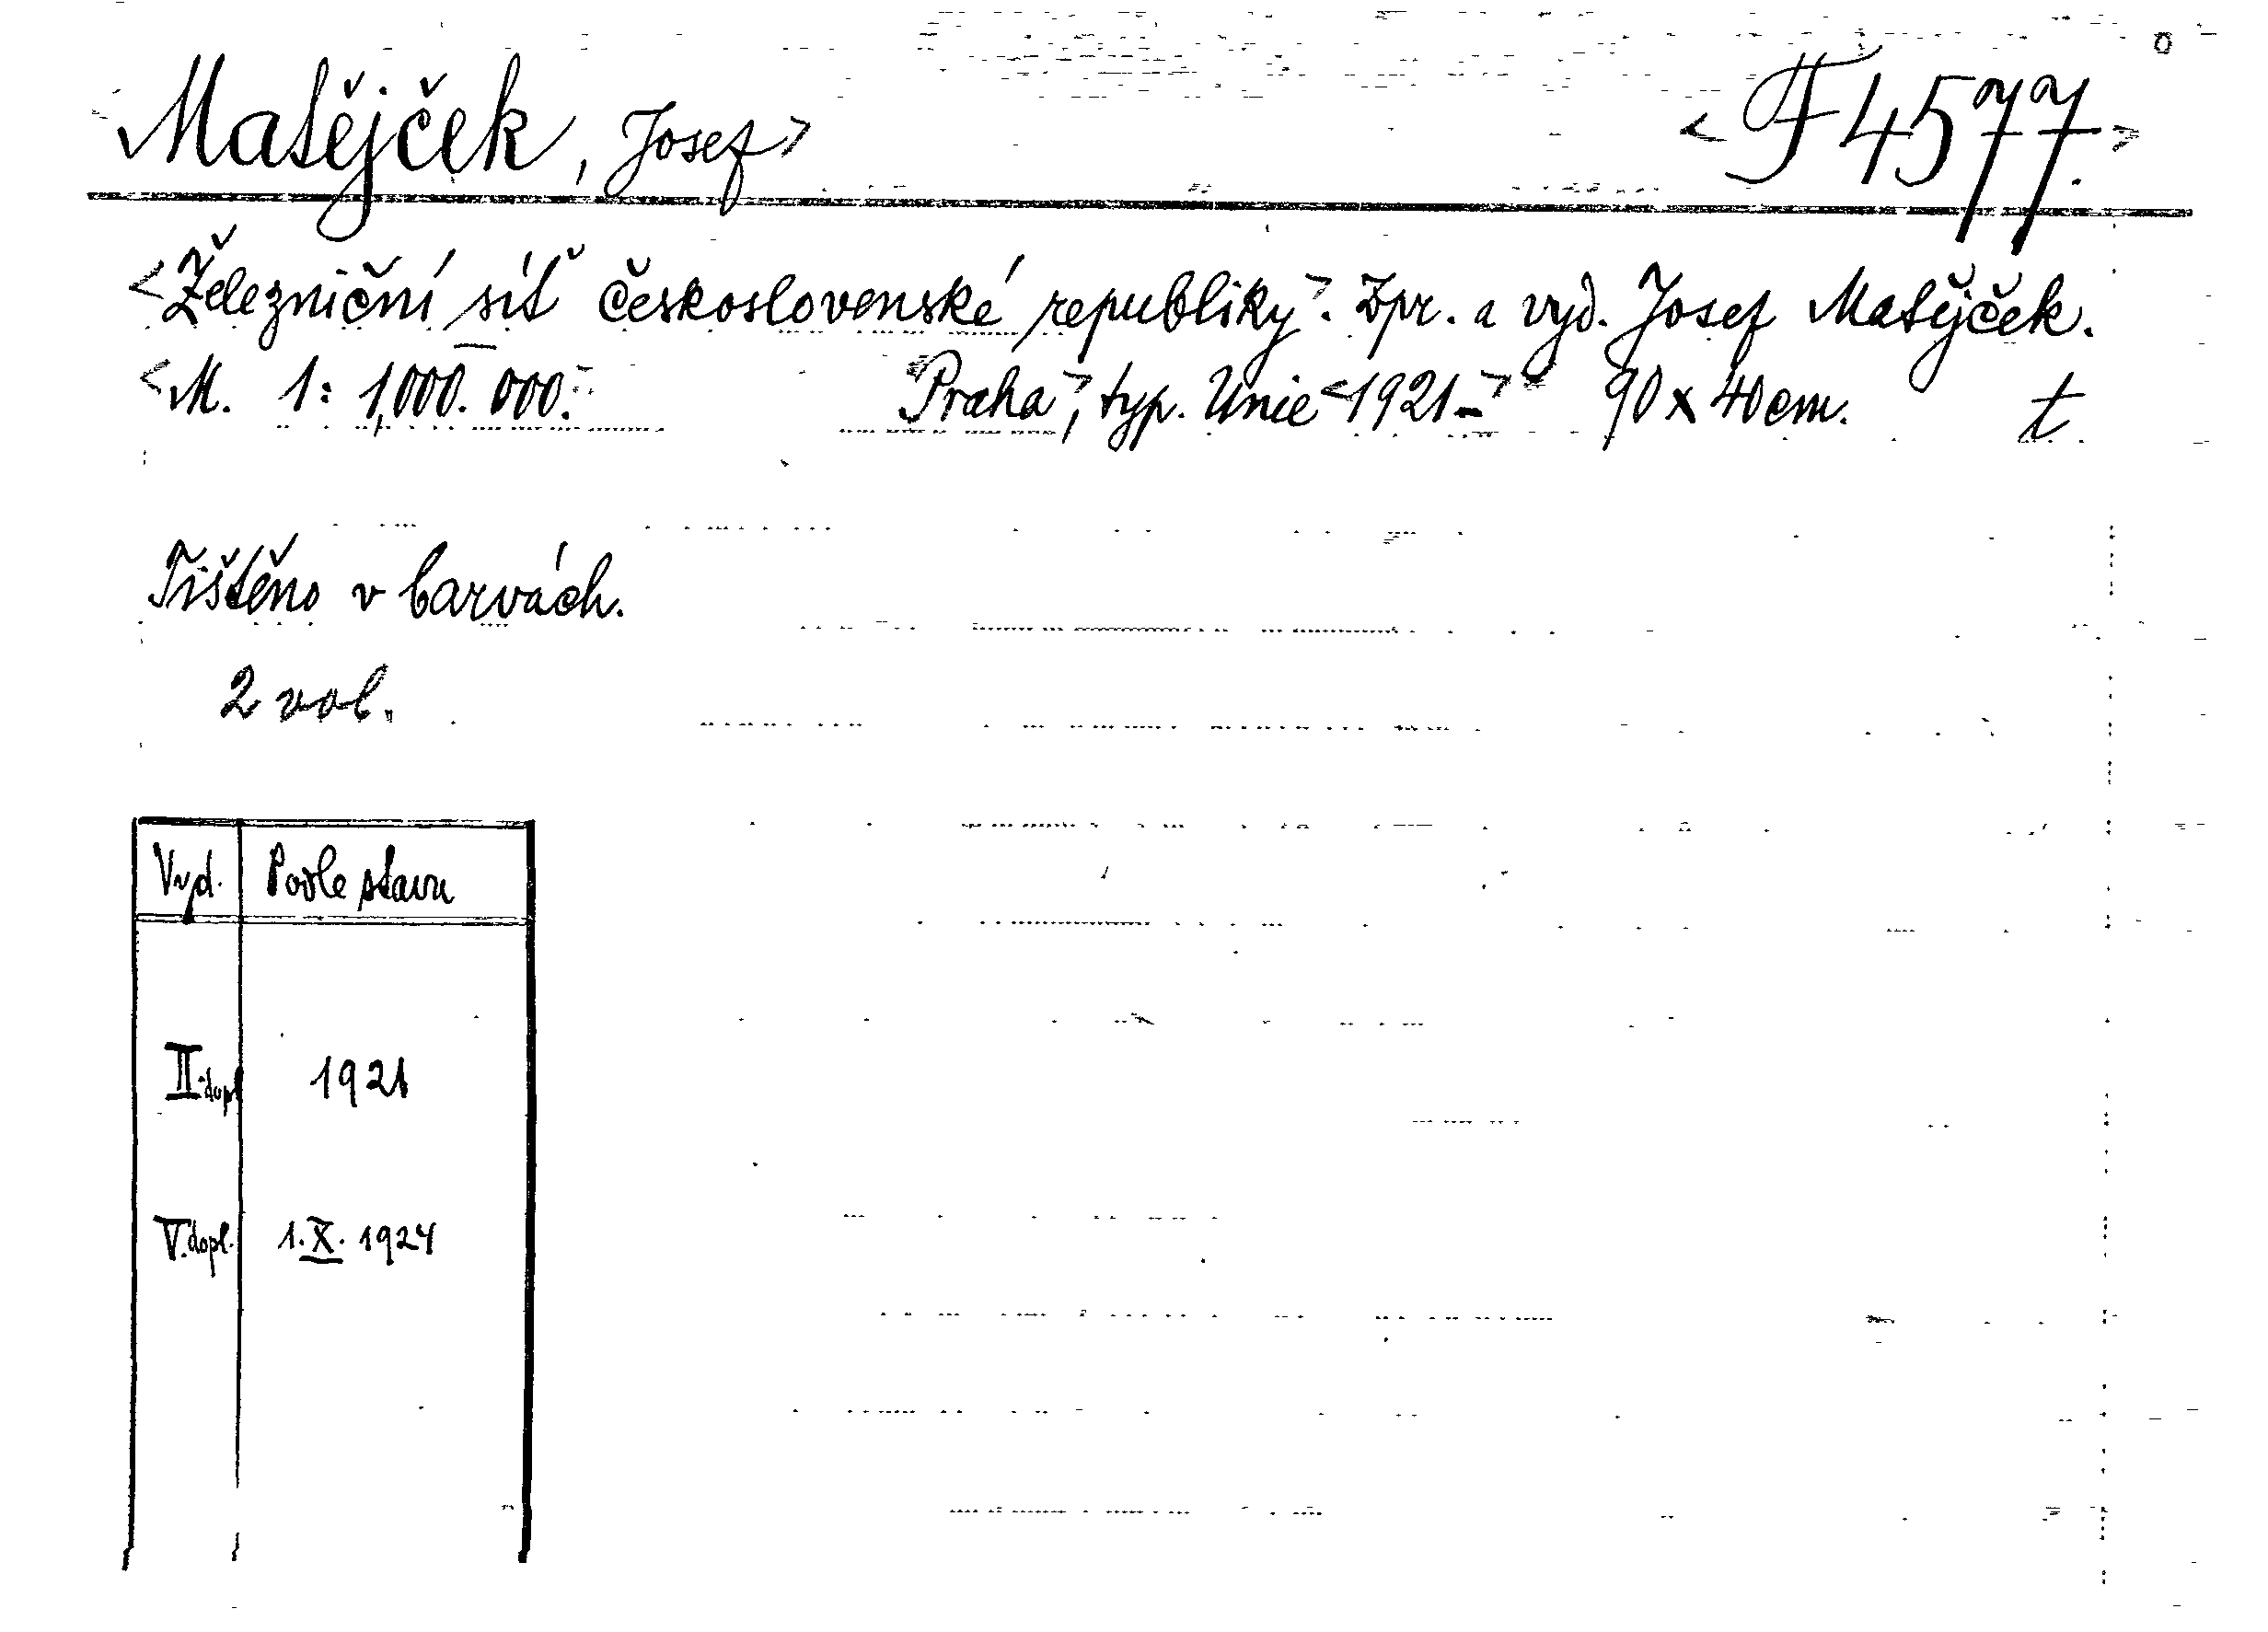 Matějček, Josef> <F 4577.>
<Železniční síť československé republiky>. Zpr. a vyd. Josef Matějček.
<M. 1:1,000.000.- <Praha>, typ. Unie <1921-> 90 x 40 cm. t.
Tištěno v barvách.
2 vol.
Vyd. Podle stavu
II. dopl. 1921
V. dopl. 1.X. 1924